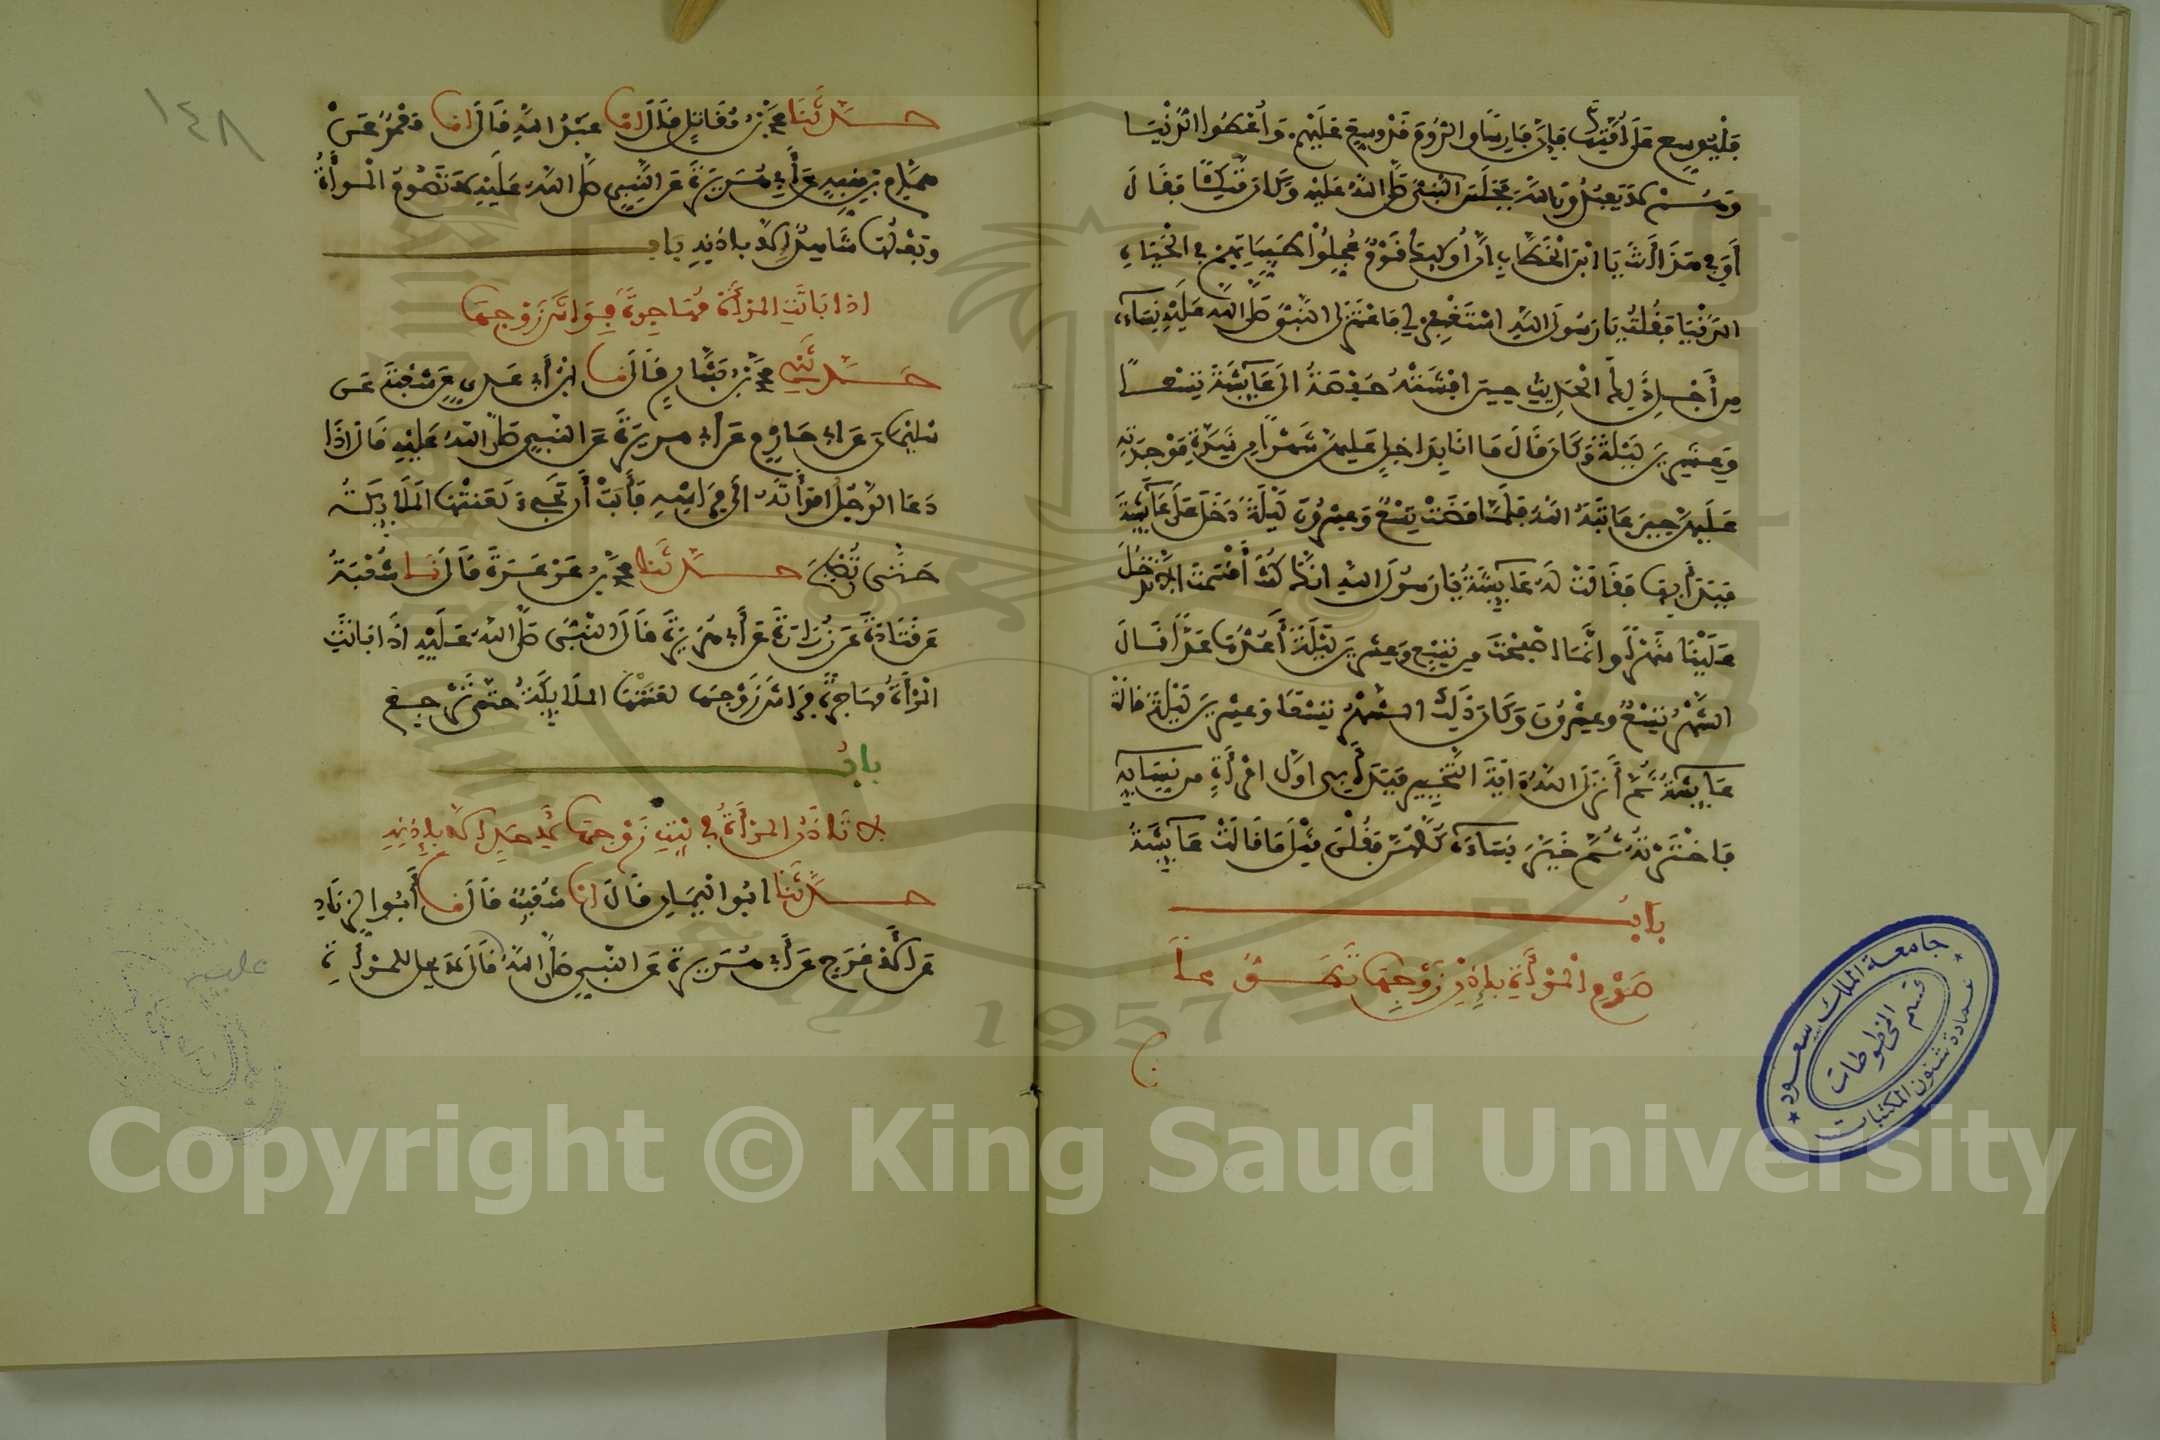 فليوسع على أمتك فإن فارسا والروم قد وسع عليهم وأعطوا الدنيا
وهم لا يعبدون الله فجلس النبي صلى الله عليه وكان متكئا فقال
أوفي هذا أنت يا ابن الخطاب إن أولئك قوم عجلوا طيباتهم في الحياة
الدنيا فقلت يا رسول الله استغفر لي فاعتزل النبي صلى الله عليه نساءه
من أجل ذلك الحديث حين أفشته حفصة إلى عائشة تسعا
وعشرين ليلة وكان قال ما أنا بداخل عليهن شهرا من شدة موجدته
عليهن حين عاتبه الله فلما مضت تسع وعشرون ليلة دخل على عائشة
فبدأ بها فقالت له عائشة يا رسول الله إنك كنت أقسمت ألا تدخل
علينا شهرا وإنما أصبحت من تسع وعشرين ليلة أعدها عدا فقال
الشهر تسع وعشرون وكان ذلك الشهر تسعا وعشرين ليلة قالت
عائشة ثم أنزل الله آية التخيير فبدأ بي أول امرأة من نسائه
فاخترته ثم خير نساءه كلهن فقلن مثل ما قالت عائشة
باب
صوم المرأة بإذن زوجها تطوعا
١٤٨
حدثنا محمد بن مقاتل قال انا عبد الله قال انا معمر عن
همام بن منبه عن أبي هريرة عن النبي صلى الله عليه لا تصوم المرأة
وبعلها شاهد إلا بإذنه باب
اذا باتت المرأة مهاجرة فراش زوجها
حدثني محمد بن بشار قال نا ابن أبي عدي عن شعبة عن
سليمان عن أبي حازم عن أبي هريرة عن النبي صلى الله عليه قال إذا
دعا الرجل امرأته إلى فراشه فأبت أن تجيء لعنتها الملائكة
حتى تصبح حدثنا محمد بن عرعرة قال نا شعبة
عن قتادة عن زرارة عن أبي هريرة قال النبي صلى الله عليه إذا باتت
المرأة مهاجرة فراش زوجها لعنتها الملائكة حتى ترجع
باب
لا تأذن المرأة في بيت زوجها لأحد إلا بإذنه
حدثنا ابو اليمان قال انا شعيب قال نا أبو الزناد
عن الأعرج عن أبي هريرة عن النبي صلى الله قال لا يحل للمرأة
جامعة الملك سعود
قسم المخطوطات
عمادة شئون المكتبات
1957
Copyright © King Saud University